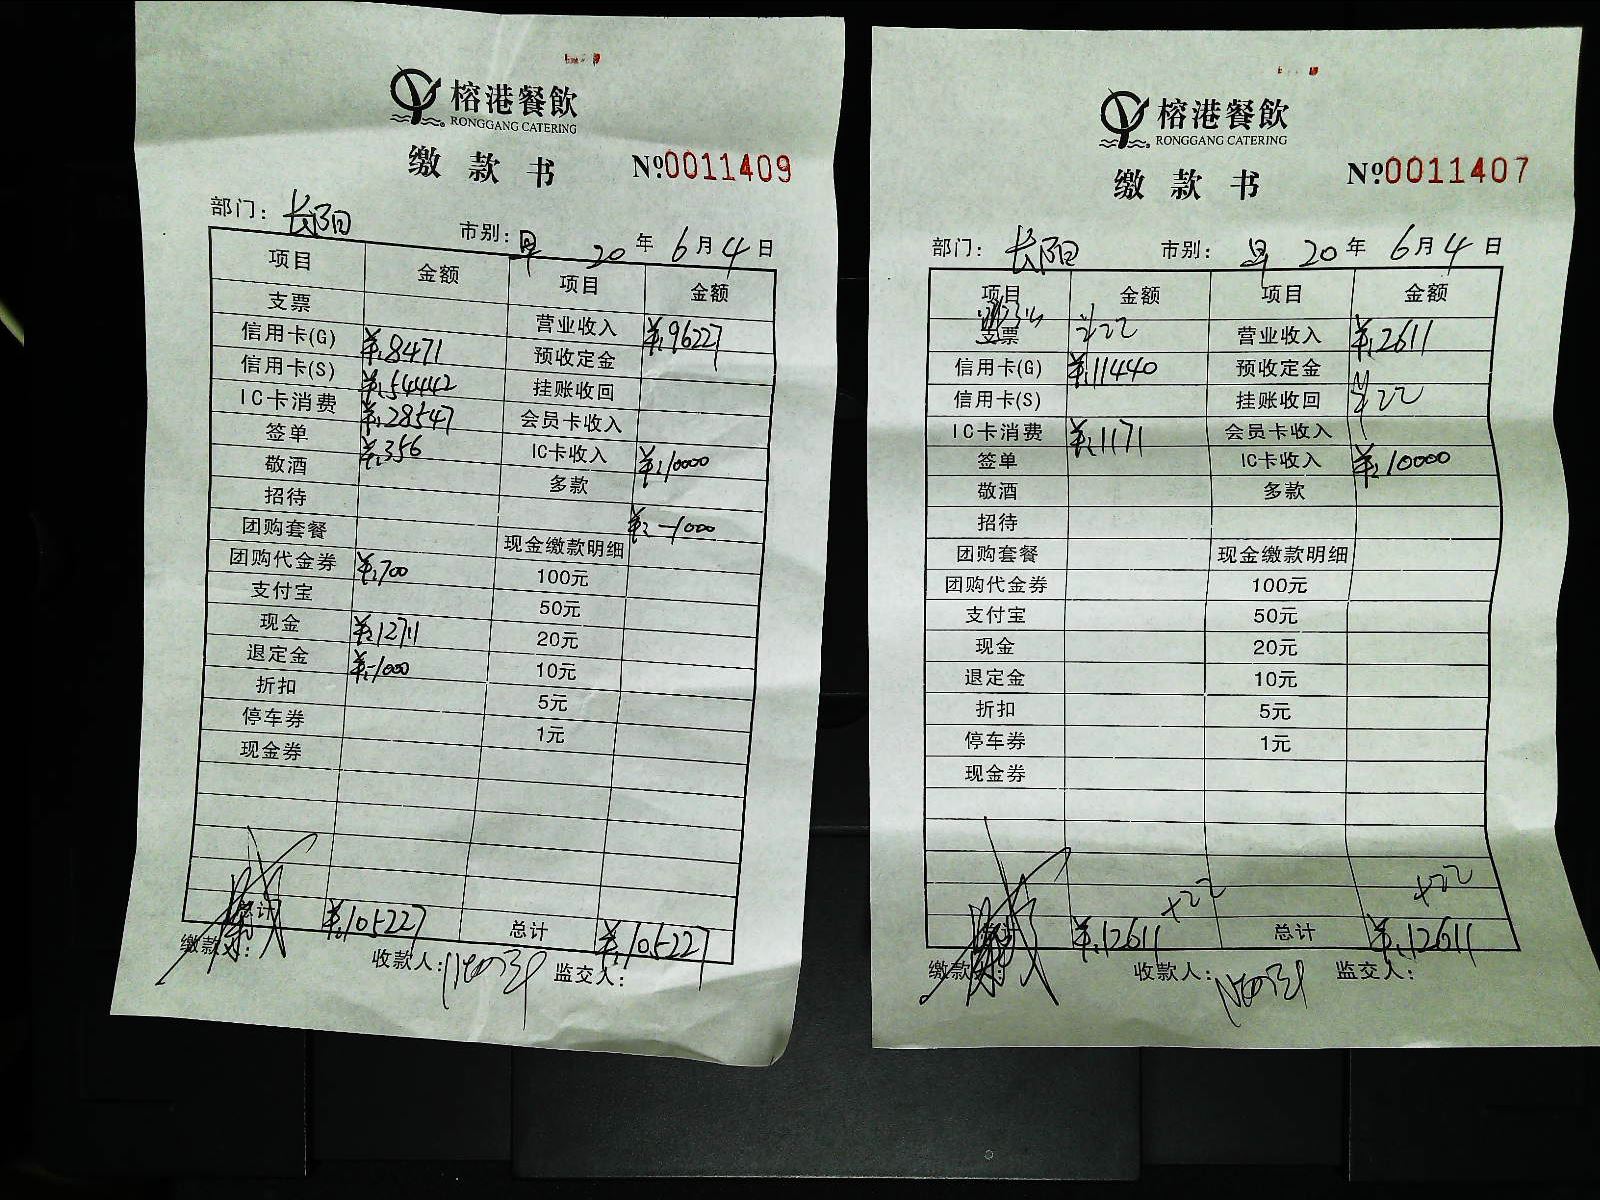 榕港餐飲
RONGGANG CATERING
缴款书 №.0011409
部门: 长阳 市别: 20年6月4日
项目 金额 项目 金额
支票 营业收入 ¥:96227
信用卡(G) ¥:8471 预收定金
信用卡(S) ¥:54442 挂账收回
IC卡消费 ¥:28547 会员卡收入
签单 ¥:356 IC卡收入 ¥:10000
敬酒 多款
招待 ¥:-1000
团购套餐 现金缴款明细
团购代金券 ¥:700 100元
支付宝 50元
现金 ¥:12711 20元
退定金 ¥:-1000 10元
折扣 5元
停车券 1元
现金券
总计 ¥:105227 总计 ¥:105227
缴款人: 收款人: 监交人:
榕港餐飲
RONGGANG CATERING
缴款书 №.0011407
部门: 长阳 市别: 早 20年6月4日
项目 金额 项目 金额
支票 ¥22 营业收入 ¥:2611
信用卡(G) ¥:11440 预收定金
信用卡(S) 挂账收回 ¥22
IC卡消费 ¥:1171 会员卡收入
签单 IC卡收入 ¥:10000
敬酒 多款
招待
团购套餐 现金缴款明细
团购代金券 100元
支付宝 50元
现金 20元
退定金 10元
折扣 5元
停车券 1元
现金券
+22 +22
¥:12611 总计 ¥:12611
缴款 收款人: 监交人: